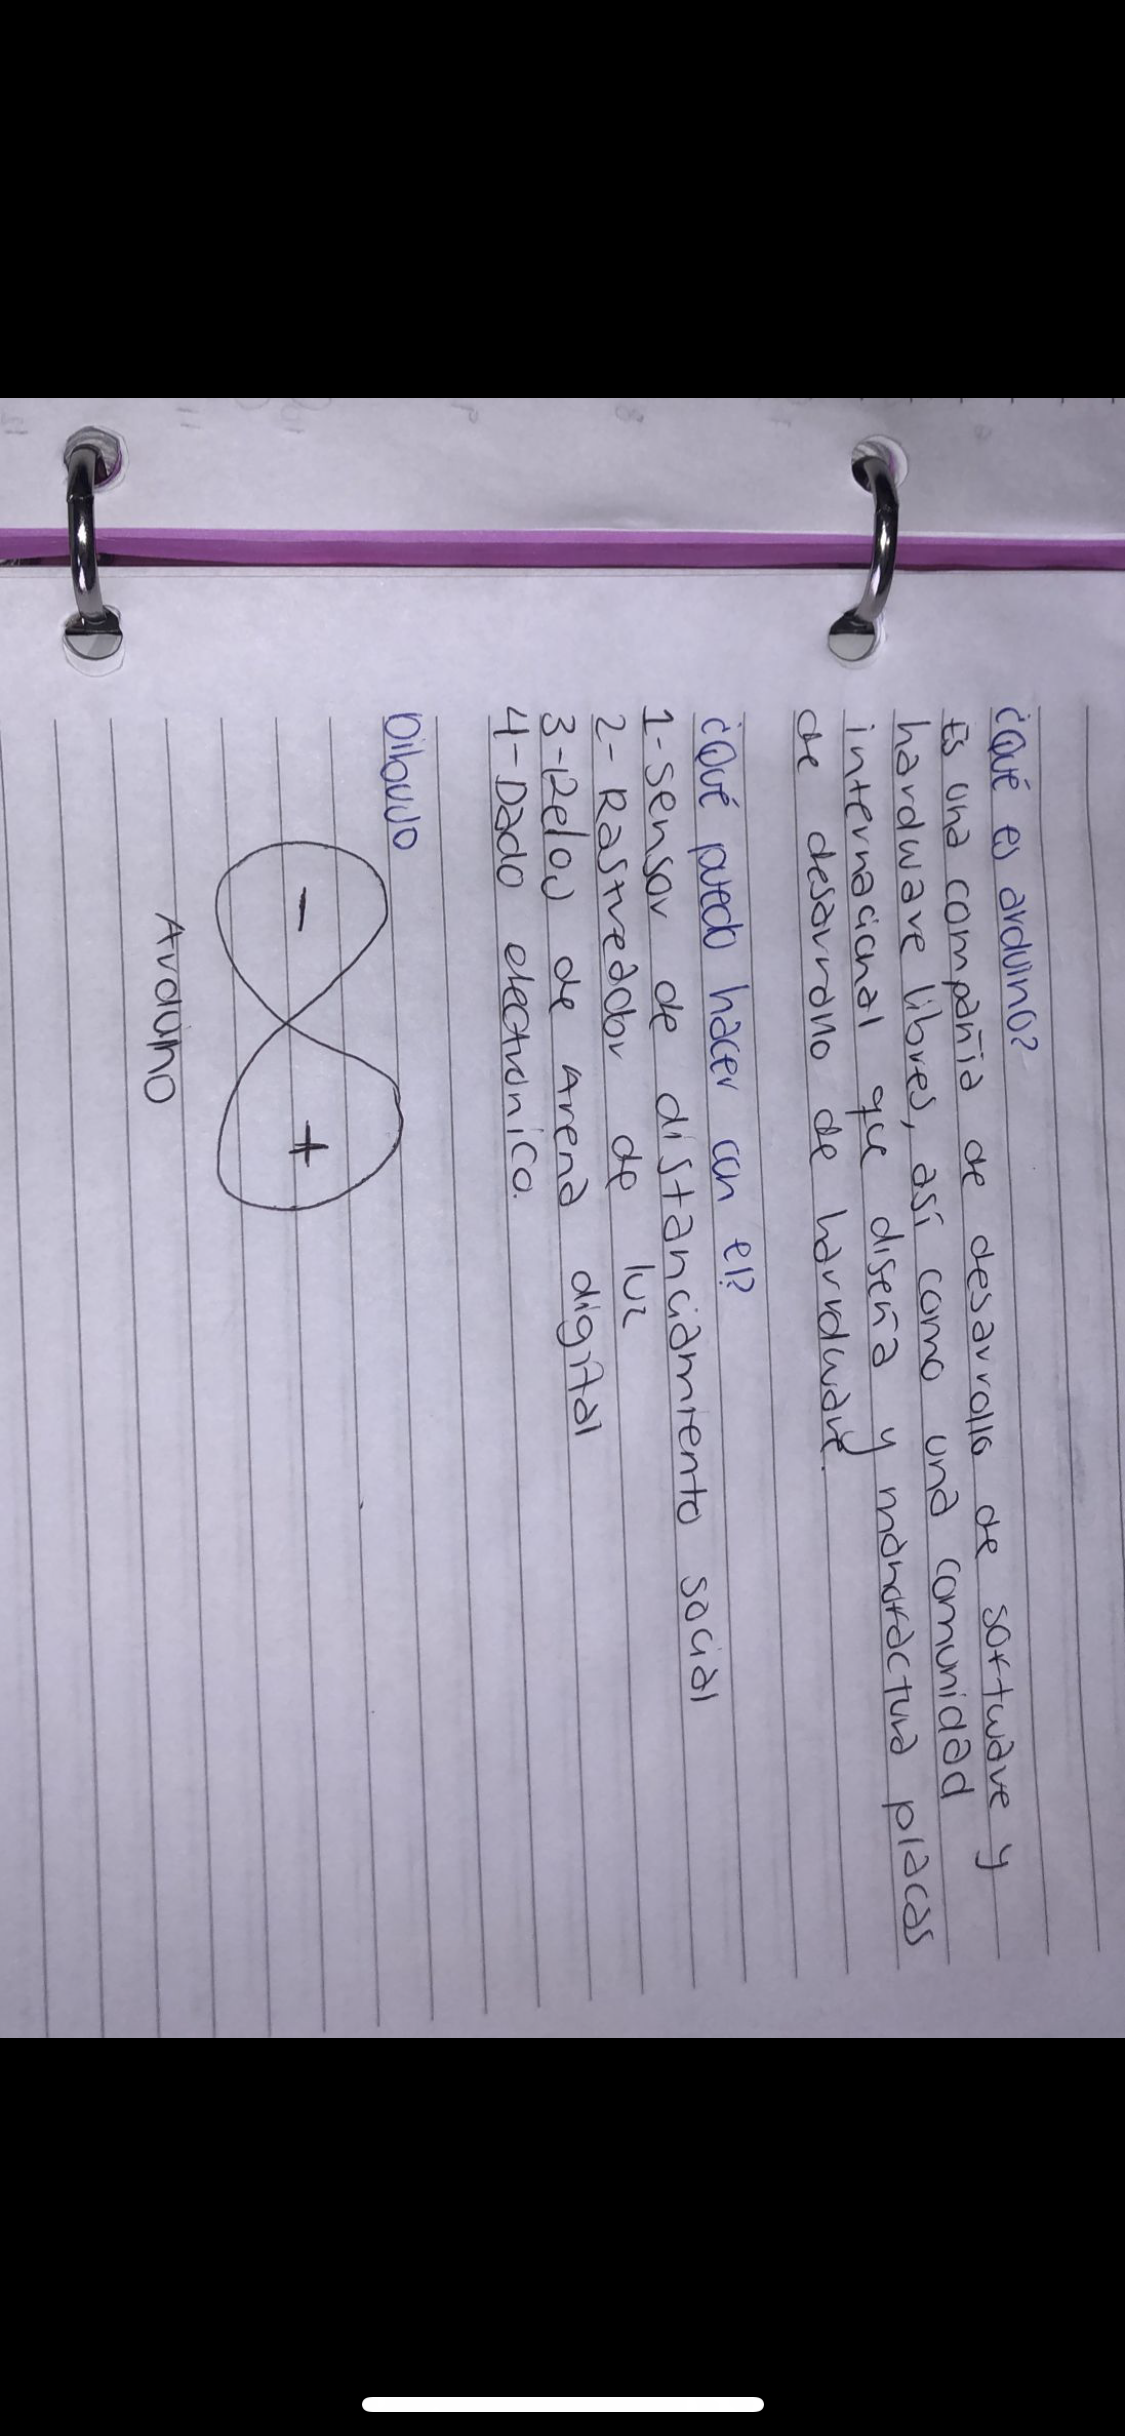 ¿Qué es arduino?
Es una compañia de desarrollo de software y
hardware libres, así como una comunidad
internacional que diseña y manufactura placas
de desarrollo de harrdware.
¿Qué puedo hacer con el?
1-Sensor de distanciamiento social
2-Rastreador de luz
3-Reloj de Arena digital
4-Dado electronico.
Dibujo
-
+
Arduino